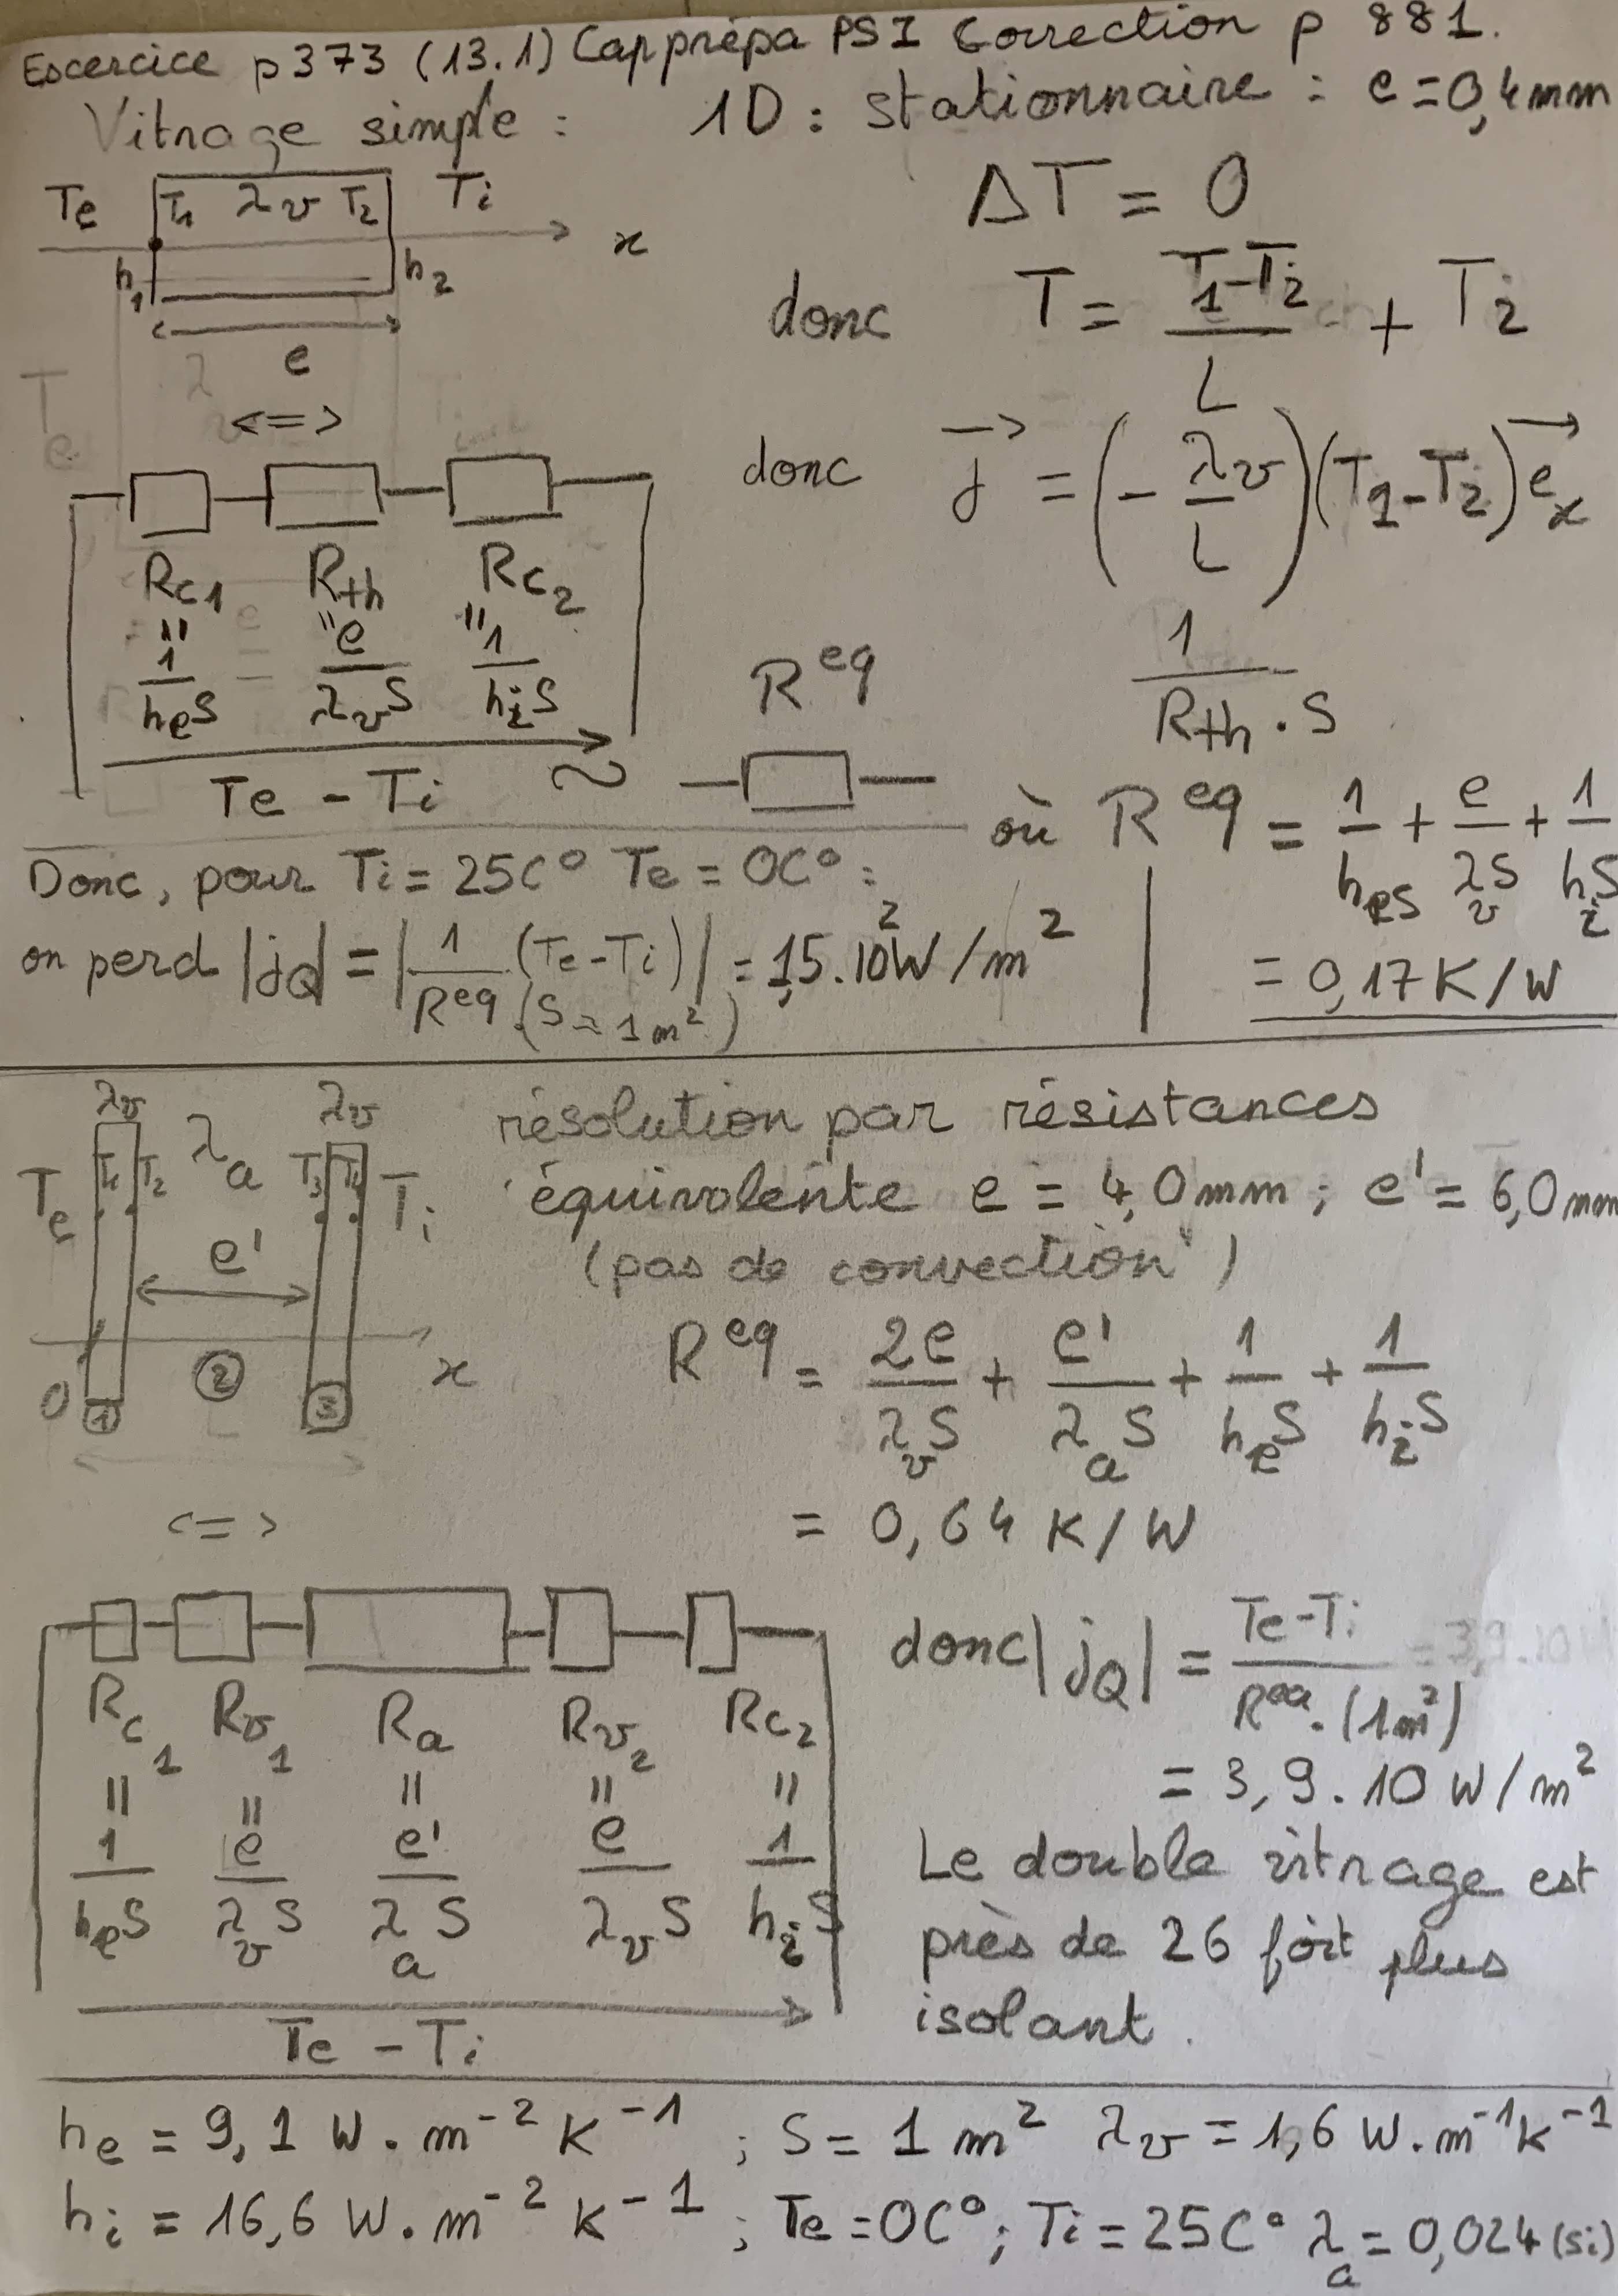 Exercice p373 (13.1) Capprépa PSI Correction p 881.
Vitrage simple : 1D : stationnaire : e = 0,4mm
Te T1 λv T2 Ti
x
h1 h2
e
ΔT = 0
donc T = (T1-T2)/L x + T2
<=>
donc j⃗ = (- λv/L)(T1-T2) e⃗x
Rc1 Rth Rc2
" " "
1/(heS) e/(λvS) 1/(hiS)
Te - Ti
~
R^eq
1/(Rth . S)
où R^eq = 1/(heS) + e/(λvS) + 1/(hiS)
= 0,17 K/W
Donc, pour Ti = 25C° Te = 0C° :
on perd |jQ| = |1/(R^eq.(S=1m²)) (Te-Ti)| = 1,5.10² W/m²
λv λv
Te T1 T2 λa T3 T4 Ti
e'
0 x
① ② ③
résolution par résistances
équivalente e = 4,0mm ; e' = 6,0mm
(pas de convection)
R^eq = 2e/(λvS) + e'/(λaS) + 1/(heS) + 1/(hiS)
= 0,64 K/W
<=>
Rc1 Rv1 Ra Rv2 Rc2
= = = = =
1/(heS) e/(λvS) e'/(λaS) e/(λvS) 1/(hiS)
Te - Ti
donc |jQ| = (Te-Ti)/(R^eq.(1m²))
= 3,9.10 W/m²
Le double vitrage est
près de 26 foit plus
isolant.
he = 9,1 W.m⁻² K⁻¹ ; S = 1 m² λv = 1,6 W.m⁻¹K⁻¹
hi = 16,6 W.m⁻² K⁻¹ ; Te = 0C° ; Ti = 25C° λa = 0,024 (si)